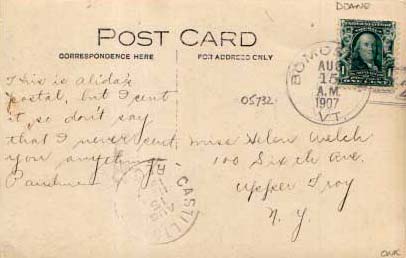 DOANE
POST CARD
CORRESPONDENCE HERE
FOR ADDRESS ONLY
BOMOS
AUG
15
A.M.
1907
VT.
05732
This is alida's
postal, but I cent
it, so don't say
that I never cent
you anything
Miss Helen Welch
100 Sixth Ave.
Upper Troy
N. Y.
CASTLET
AUG
15